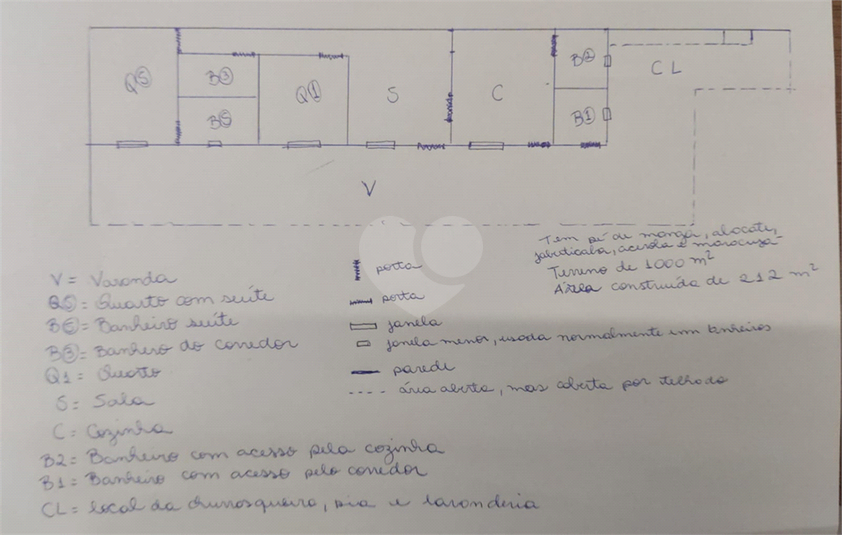 QS
B3
BS
Q1
S
C
B2
B1
CL
V
Tem pé de manga, abacate,
jabuticaba, acerola e maracujá
Terreno de 1000 m²
Área construída de 212 m²
V = Varanda
QS = Quarto com suíte
BS = Banheiro suíte
B3 = Banheiro do corredor
Q1 = Quarto
S = Sala
C = Cozinha
B2 = Banheiro com acesso pela cozinha
B1 = Banheiro com acesso pelo corredor
CL = local da churrasqueira, pia e lavanderia
porta
porta
janela
janela menor, usada normalmente em banheiros
parede
área aberta, mas coberta por telhado